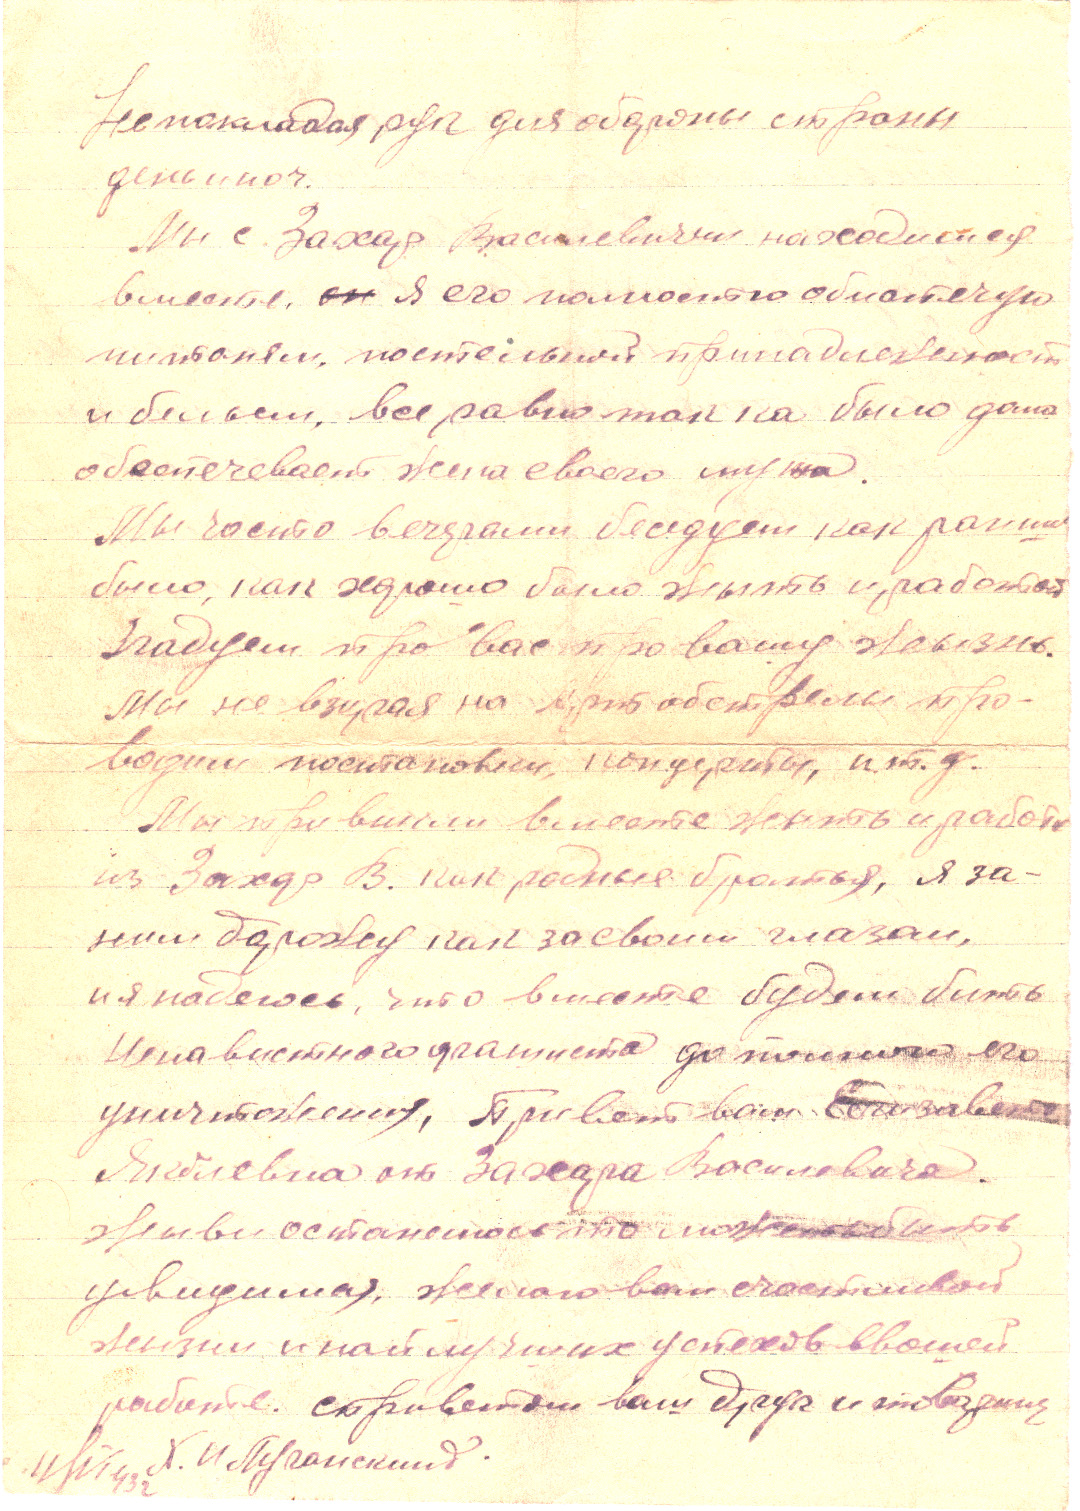 Непокладая рук для обороны страны
день и ноч.
Мы с Захар Василевичим находимся
вместе, он я его полностю обиспечую
питаням, постельной принадлежност
и бельем, все равно так ка было дома
обеспечевает жена своего мужа.
Мы часто вечерами беседуем как раньш
было, как хорошо было жыть и работат
Згадуем про вас про вашу жызнь.
Мы не взирая на артобстрелы про-
водим постановки, концерты, и.т.д.
Мы привыкли вместе жыть и работ
из Захар В. как родные братья, я за-
ним дорожу как засвоим глазам,
и я надеюсь, что вместе будем бить
Ненавистного фашиста до полного его
уничтожения, Привет вам Елизавета
Яковлевна от Захара Василевича.
Живы останемось то может быть
увидимся, желаю вам счастливой
жизни и найлучших успехов ввашей
работе. сприветом ваш друг и товарищ
43г Х. И